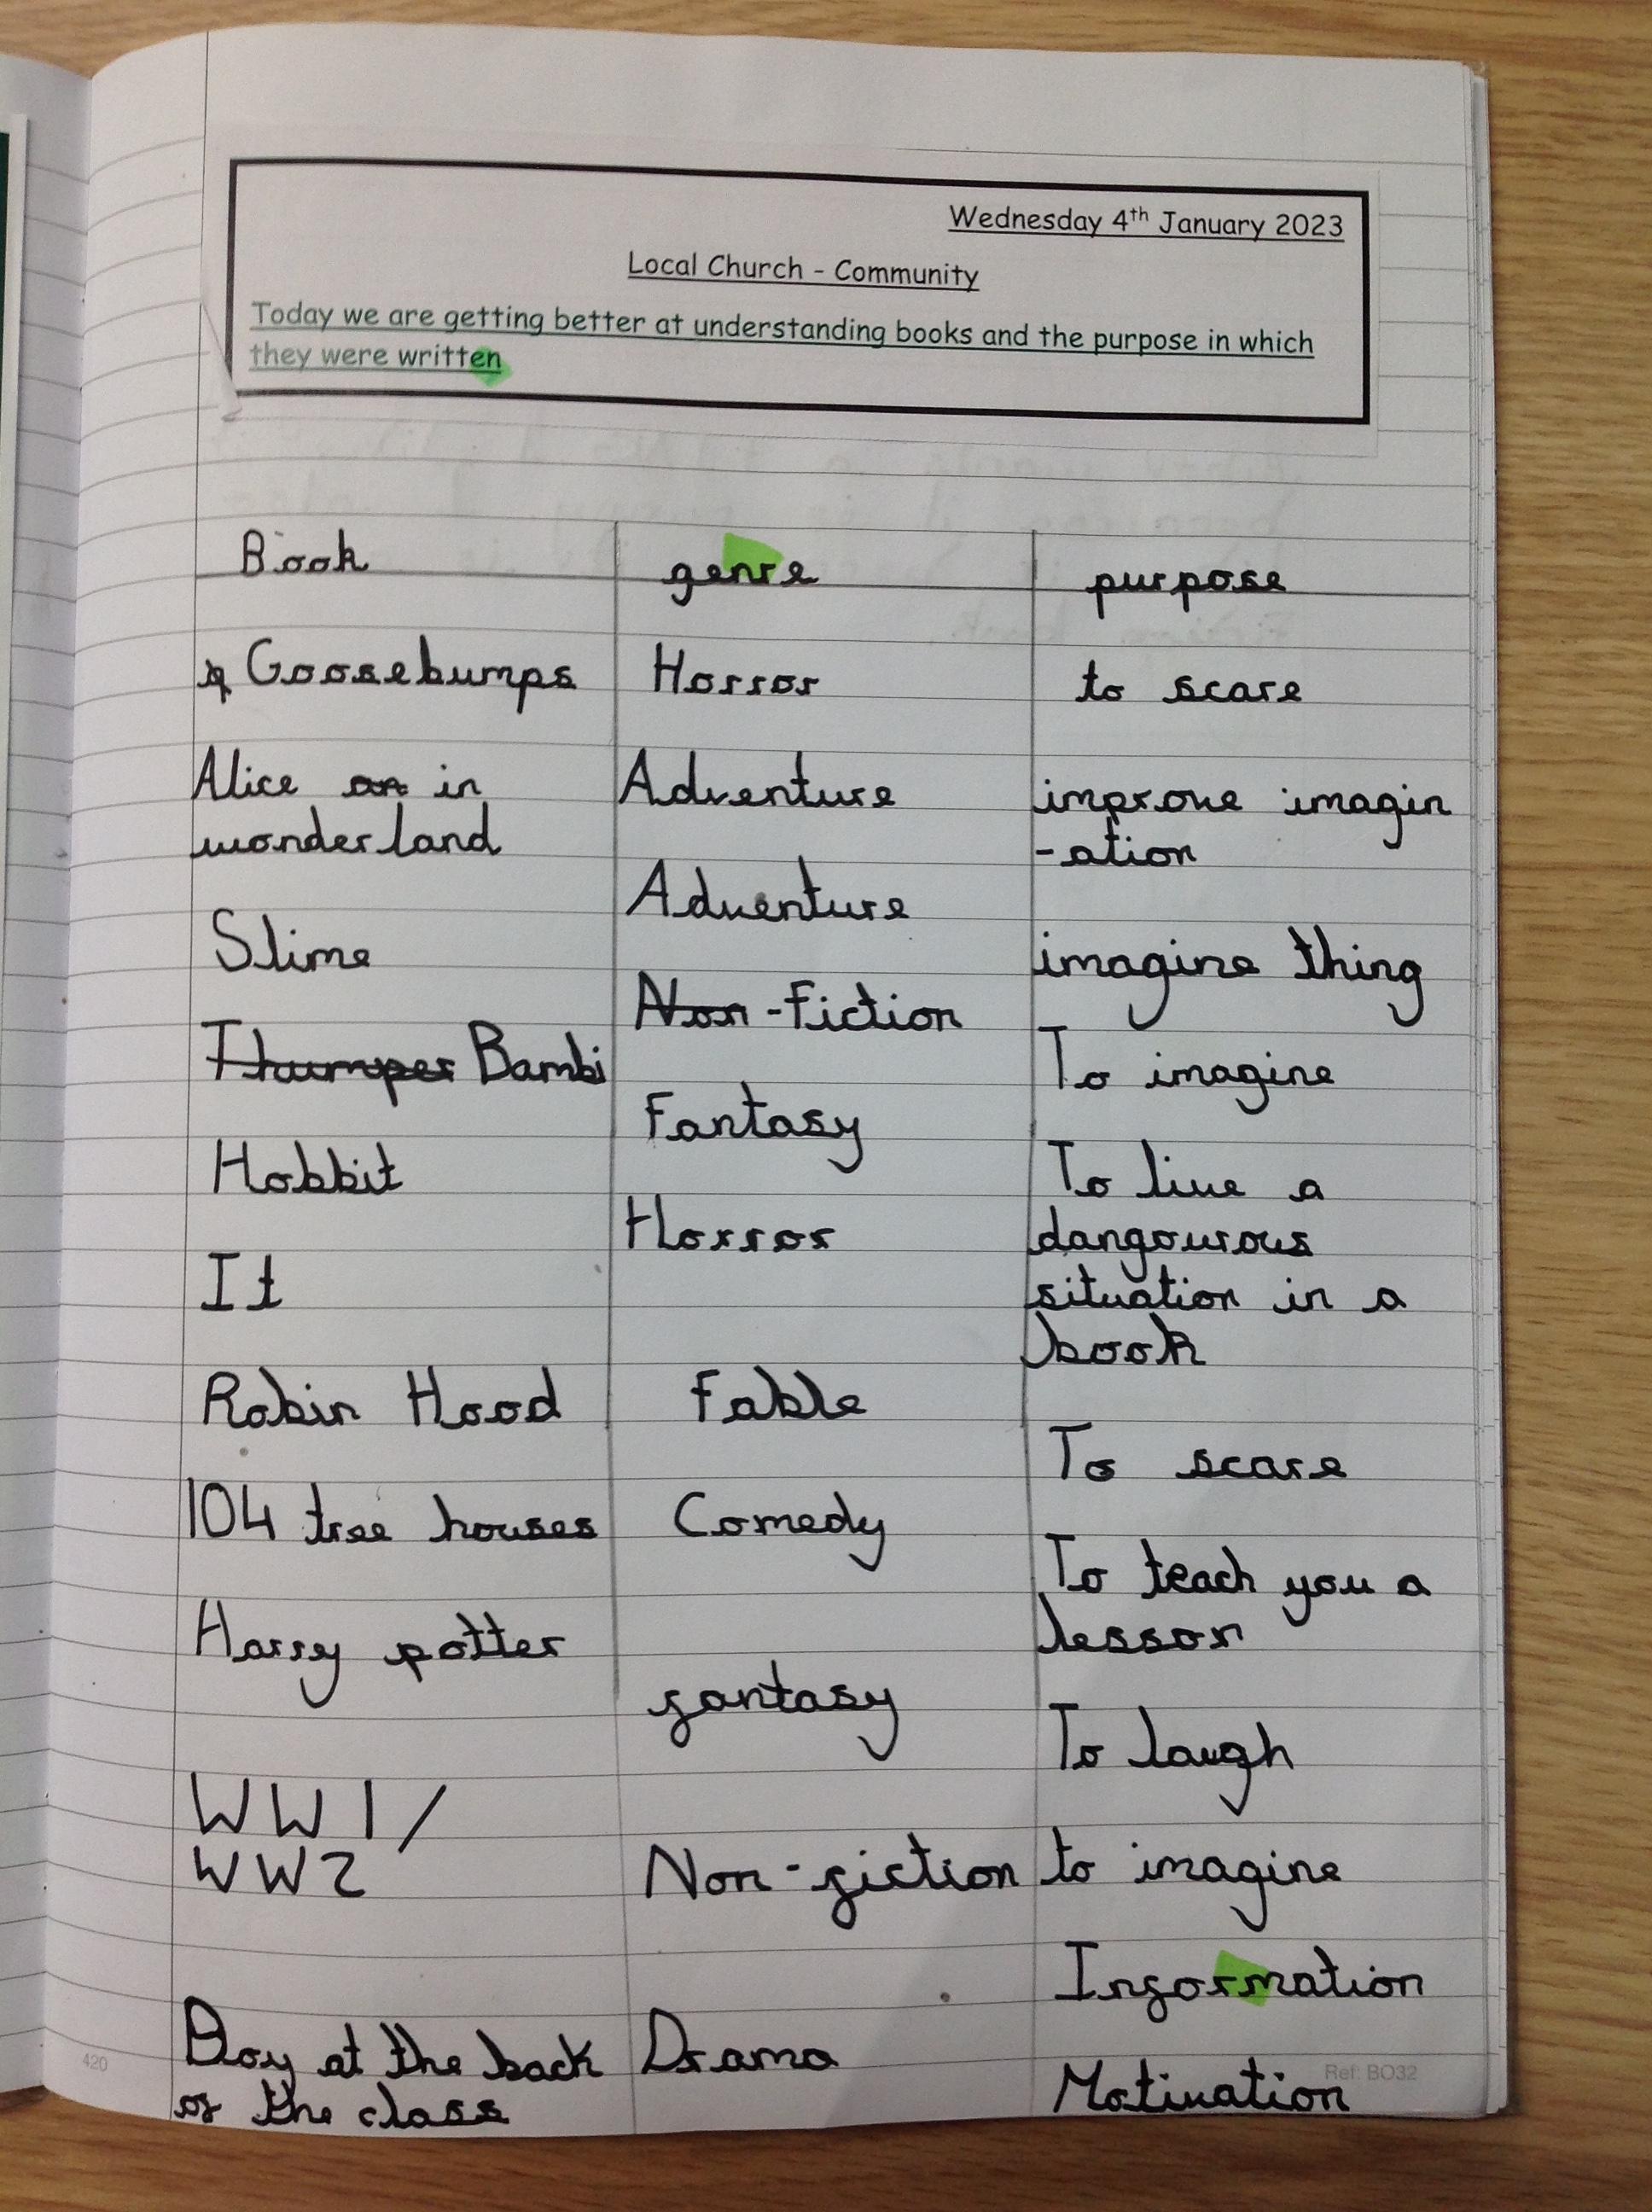 Wednesday 4th January 2023
Local Church - Community
Today we are getting better at understanding books and the purpose in which
they were written
Book genre purpose
Goosebumps Horror to scare
Alice in Adventure improve imagin
wonderland -ation
Adventure
Slime imagine thing
Non -Fiction
Thumper Bambi To imagine
Fantasy
Hobbit To live a
Horror dangourous
It situation in a
book
Robin Hood Fable
To scare
104 tree houses Comedy
To teach you a
Harry potter lesson
fantasy
To laugh
WW1/
WW2 Non-fiction to imagine
Information
Boy at the back Drama
of the class Motivation
420
Ref: BO32